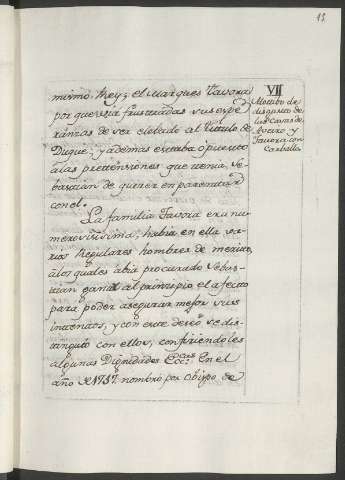 15
mismo Rey; el Marques Tavora
por que veía frustradas sus espe
ranzas de ser elebado al Titulo de
Duque; y ademas estaba opuesto
a las prettensiones que tenia Se-
bastian de querer emparentar
con el.
La familia Tavora era nu
merosissima; habia en ella va-
rios Regulares hombres de merito,
a los quales abia procurado Sebas-
tian ganar al principio el afecto
para poder asegurar mejor sus
intentos, y con este deseo se dis-
tinguio con ellos, confiriendoles
algunas Dignidades Eccas. En el
año de 1757 nombró por Obispo de
VII
Motibo de
disgusto de
las Casas de
Aveiro y
Tavora con
Carballo